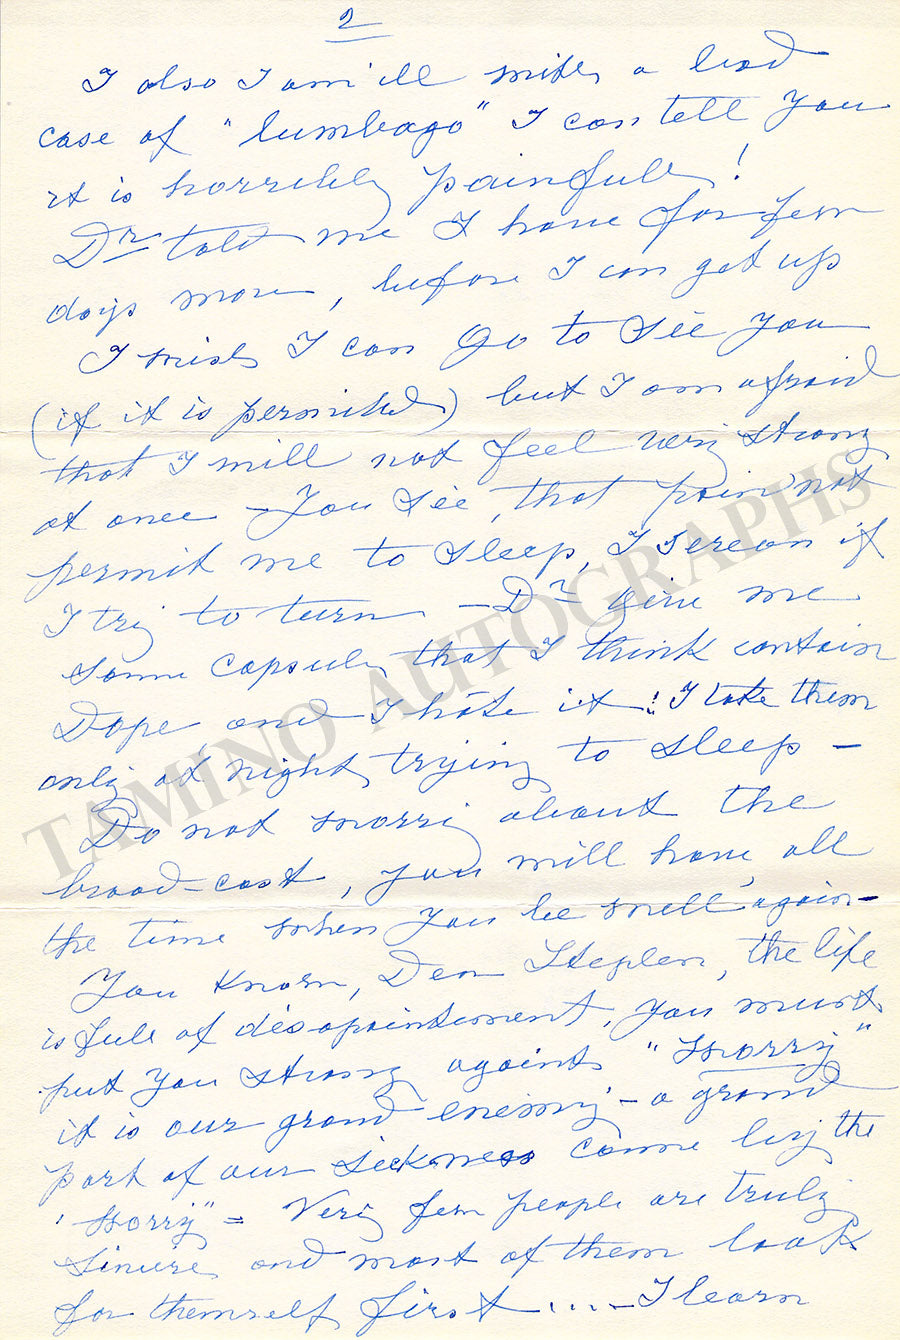 2
I also I am ill with a bad
case of "lumbago" I can tell you
it is horribly painfull!
Dr told me I have for few
days more, before I can get up
I wish I can go to see you
(if it is permited) but I am afraid
that I will not feel very strong
at once - You see, that pain not
permit me to sleep, I scream if
I try to turn - Dr give me
some capsule, that I think contain
Dope and I hate it! I take them
only at night, trying to sleep -
Do not worry about the
broad-cast, you will have, all
the time when you be well, again -
You know, Dear Stephen, the life
is full of desapointement, you must
put you strong againts "worry"
it is our grand enemy - a grand
part of our sickness come by the
"worry" - Very few people are truly
sincere, and most of them look
for themself first .... - I learn
TAMINO AUTOGRAPHS